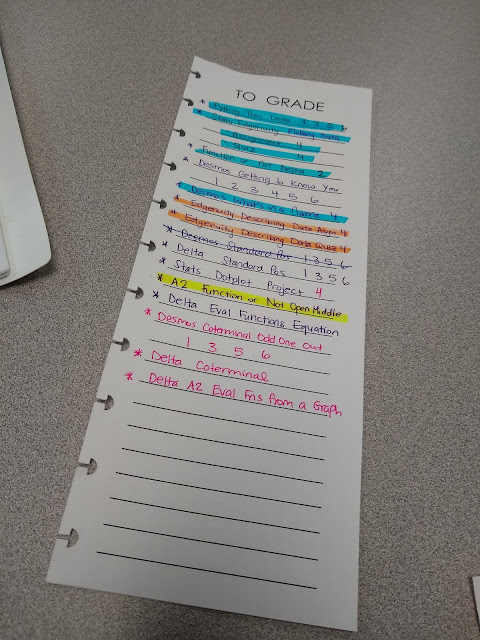 TO GRADE
* Pythag Thm Delta 1 3 5 6
* Stats Edgenuity Plotting Data
Assignment 4
Quiz 4
* Function or Not Delta 2
* Desmos Getting to Know You
1 2 3 4 5 6
* Desmos What's in a Name 4
* Edgenuity Describing Data Assgn 4
* Edgenuity Describing Data Quiz 4
* Desmos Standard Pos 1 3 5 6
* Delta Standard Pos 1 3 5 6
* Stats Dotplot Project 4
* A2 Function or Not Open Middle
* Delta Eval Functions Equation
* Desmos Coterminal Odd One Out
1 3 5 6
* Delta Coterminal
* Delta A2 Eval Fns from a Graph